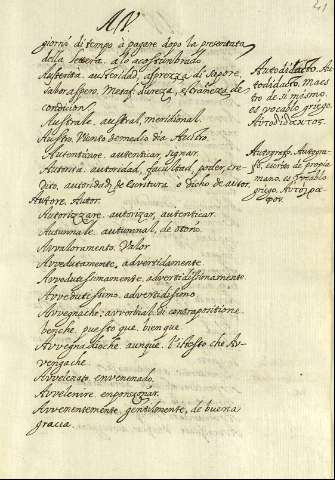 AV.
giorno di tempo à pagare dopo la presentata
della lettera. a lo acostumbrado
Austerità. austeridad, asprezza di sapore,
sabor aspero. Metaf. dureza, estrañeza de
condicion.
Australe. austral, meridional.
Austro. Viento de medio dia Austro.
Autenticare. autenticar, signar.
Autorità. autoridad, facultad, poder, cre-
dito, autoridad de escritura o dicho de autor.
Autore. Autor.
Autorizzare. autorizar, autenticar.
Autunnale. autumnal, de otoño.
Avvaloramento. Valor
Avvedutamente. advertidamente
Avvedutissimamente. advertidissimamente
Avvedutissimo. advertidissimo
Avvegnache. avverbial. di contrapositione.
benche. puesto que. bien que
Avvegnadioche. aunque. l'istesso che Av-
vengache.
Avvelenato. envenenado.
Avvelenire. enponçoñar.
Avvenentemente. gentilmente, de buena
gracia.
Autodidacto. Au-
todidacto. Maes
tro de si mismo.
es vocablo griego.
Autografo. Autogra-
fo. escrito de propia
mano. es vocablo
griego.